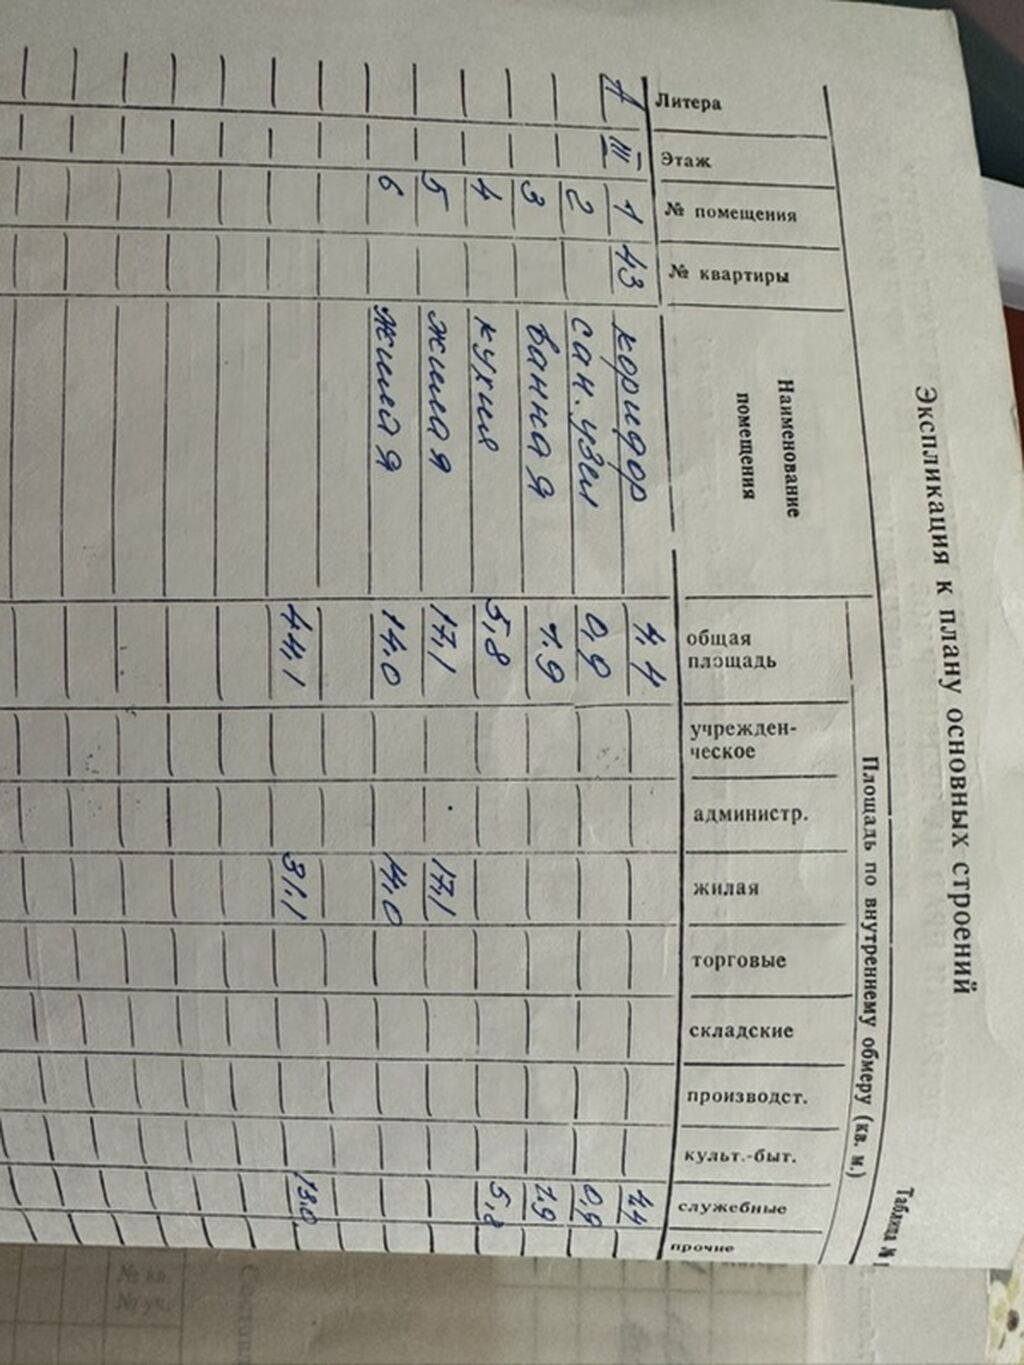 Экспликация к плану основных строений
Таблица №
Площадь по внутреннему обмеру (кв. м.)
Литера
Этаж
№ помещения
№ квартиры
Наименование
помещения
общая
площадь
учрежден-
ческое
администр.
жилая
торговые
складские
производст.
культ.-быт.
служебные
прочие
А III 1 43 коридор 4,4 4,4
2 сан.узел 0,9 0,9
3 ванная 1.9 1.9
4 кухня 5,8 5,8
5 жилая 17,1 17,1
6 жилая 14.0 14,0
44,1 31.1 13.0
№ кв.
№ уч.